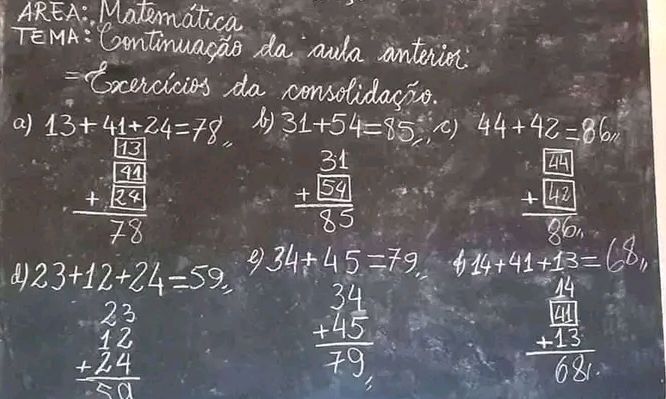 ÁREA: Matemática
TEMA: Continuação da aula anterior.
= Exercícios da consolidação.
a) 13+41+24=78,, b) 31+54=85,, c) 44+42=86,,
13
41
+ 24
78
31
+ 54
85
44
+ 42
86,,
d) 23+12+24=59,, e) 34+45=79,, f) 14+41+13=68,,
23
12
+24
59
34
+45
79,,
14
41
+13
68,,